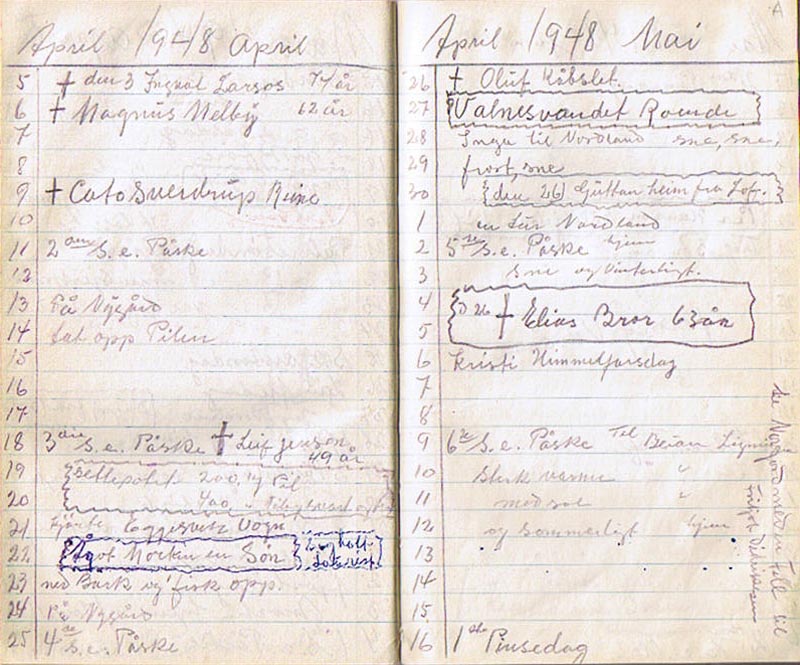 April 1948 April
5 † den 3 Ingval Larsos 74 år
6 † Magnus Melby 62 år
7
8
9 † Cato Sverdrup Reine
10
11 2den S. e. Påske
12
13 På Nygård
14 tat opp Pilen
15
16
17
18 3die S. e. Påske † Leif Jenson
49 år
19 200,
20 400
21 Vogn
22 Ågot Morten en Søn
23 ned Bark og fisk opp.
24 På Nygård
25 4de S. e. Påske
April 1948 Mai
26 † Oluf Købslet.
27 Valnesvandet Roende
28 til Nordland sne, sne,
29 frost, sne
30 den 26 Guttan heim fra Lof.
1 en tur Nordland
2 5te S. e. Påske hjem
3 sne og vinterligt.
4 D 26 † Elias Bror 63 år
5
6 Kristi Himmelfarsdag
7
8
9 6te S. e. Påske Til Beian
10 varme "
11 med sol "
12 og sommerligt hjem
13
14
15
16 1ste Pinsedag
til